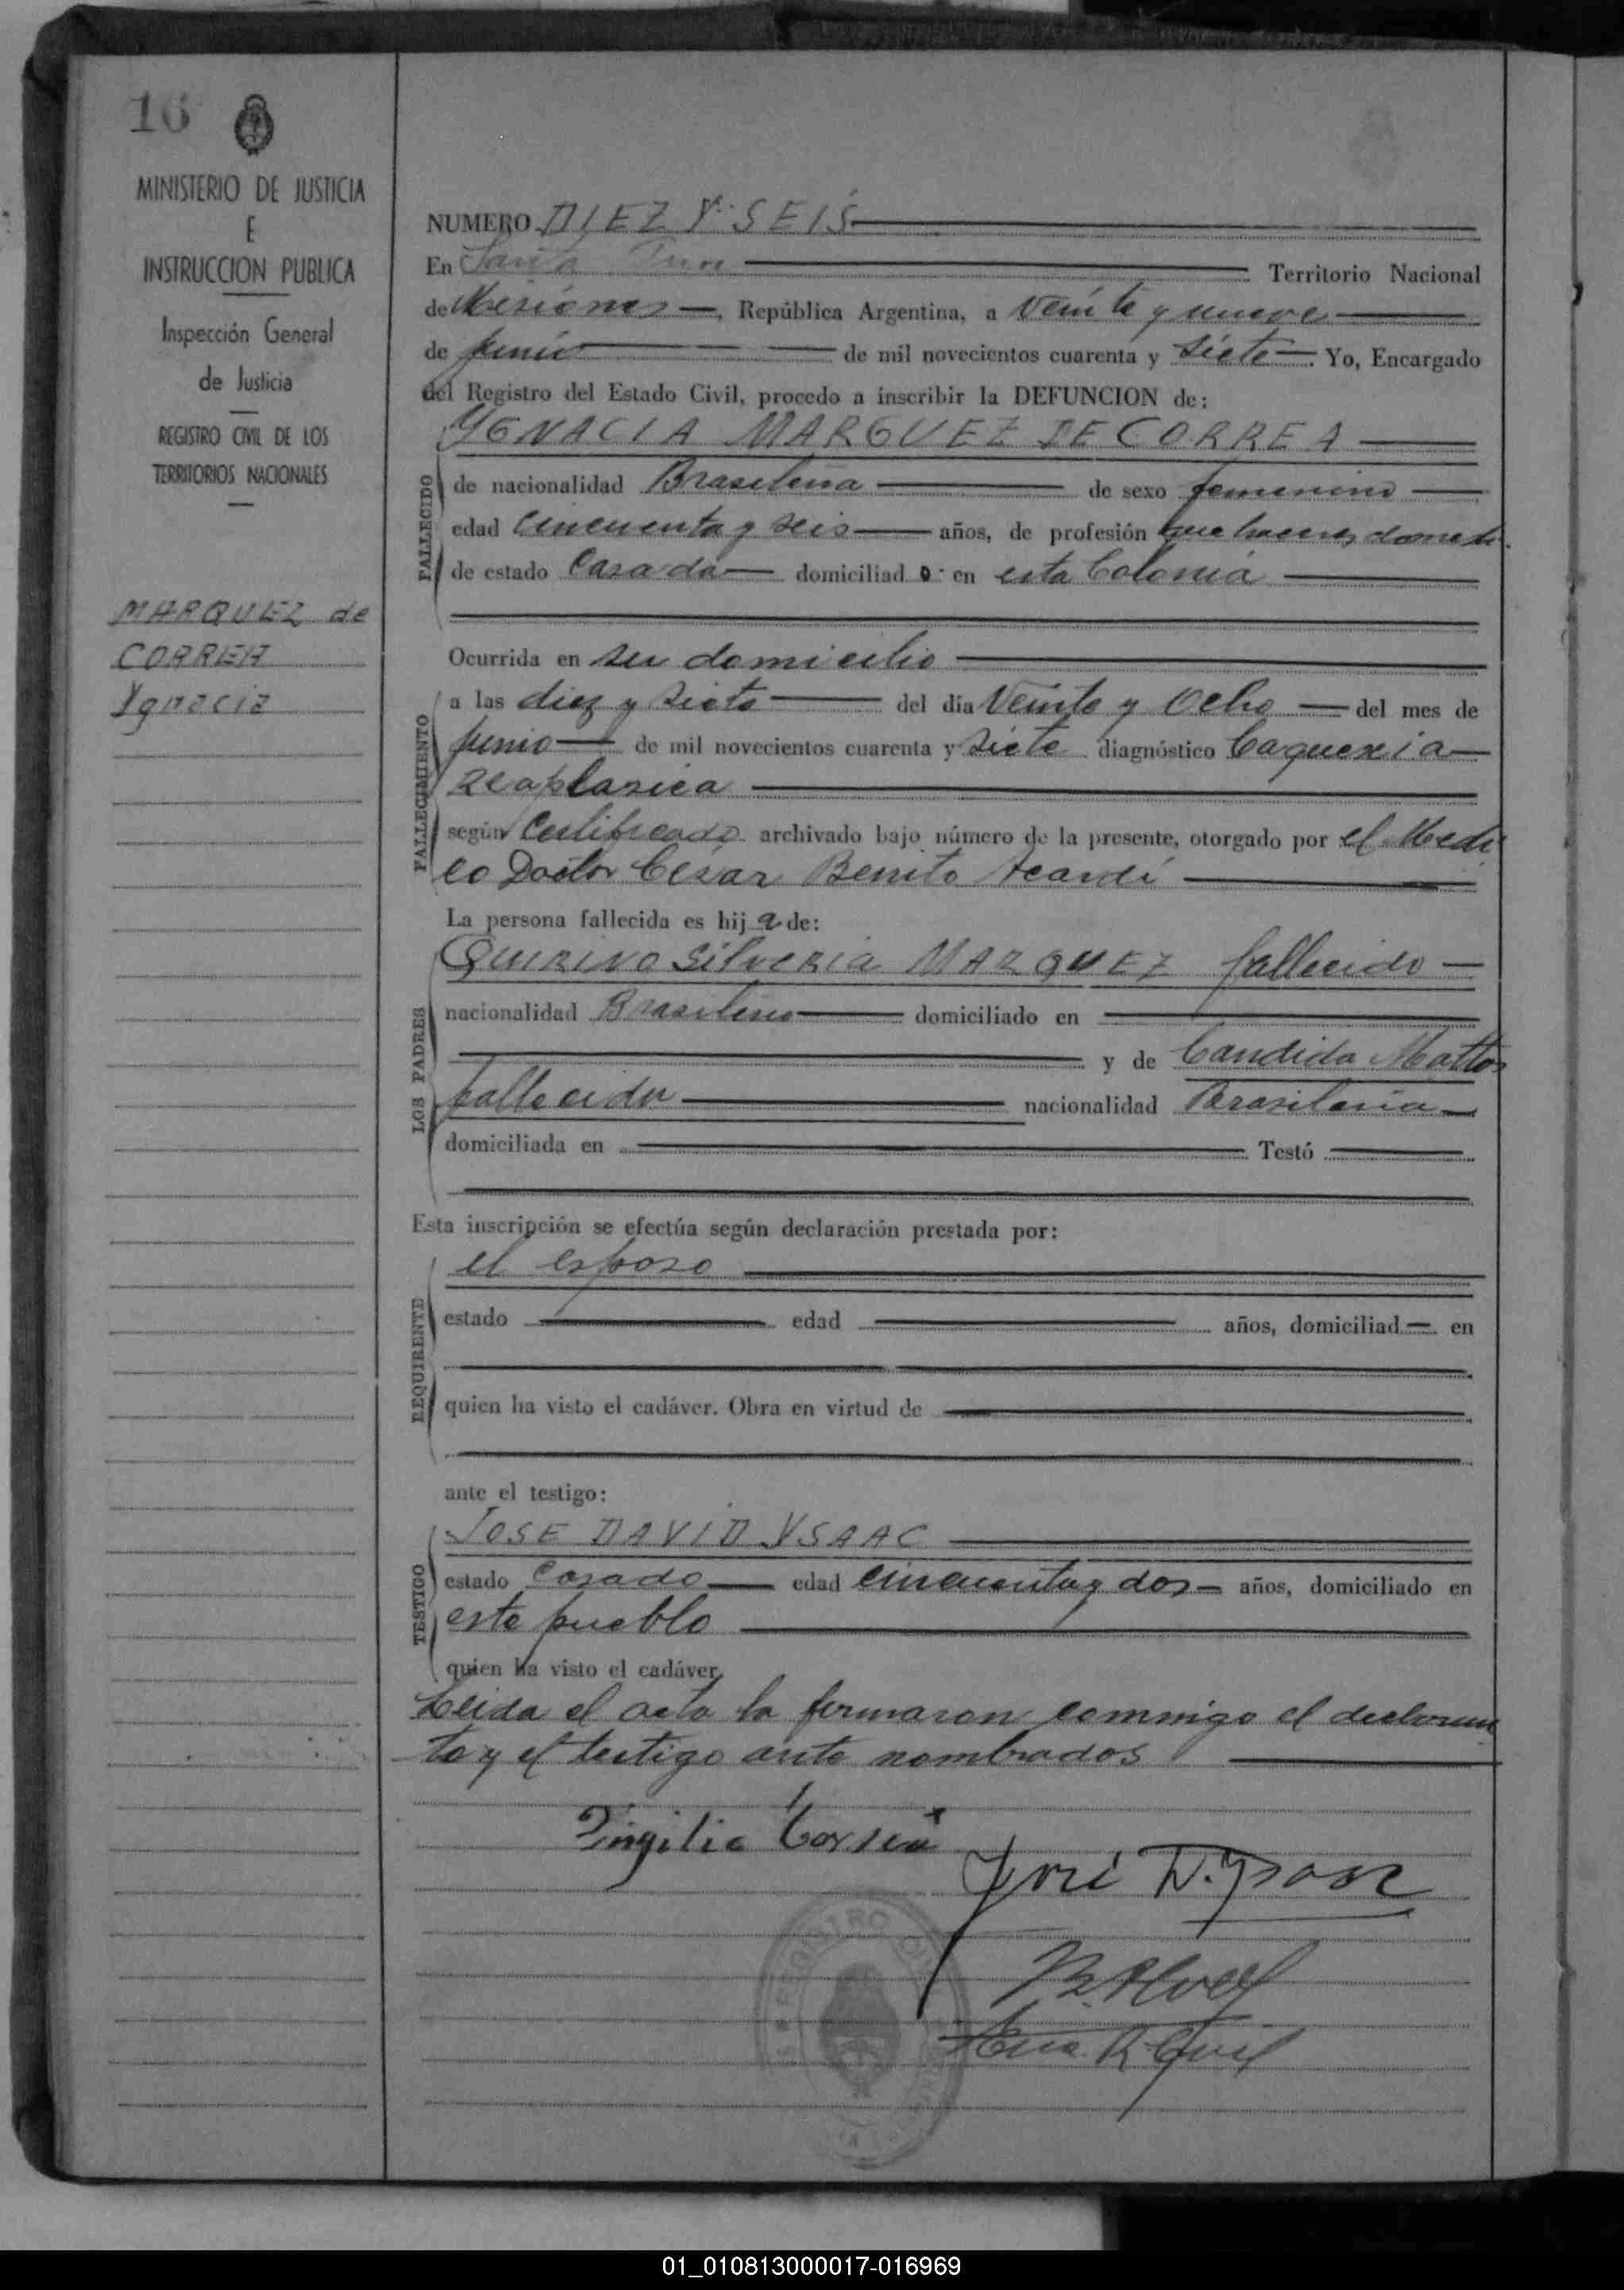 16
MINISTERIO DE JUSTICIA
E
INSTRUCCION PUBLICA
Inspección General
de Justicia
REGISTRO CIVIL DE LOS
TERRITORIOS NACIONALES
MARQUEZ de
CORREA
Ygnacia
NUMERO DIEZ Y SEIS
En Santa Ana Territorio Nacional
de Misiones, República Argentina, a veinte y nueve
de junio de mil novecientos cuarenta y siete. Yo, Encargado
del Registro del Estado Civil, procedo a inscribir la DEFUNCION de:
YGNACIA MARGUEZ DE CORREA
FALLECIDO
de nacionalidad Brasileña de sexo femenino
edad cincuenta y seis años, de profesión que haceres domesti.
de estado Casada domiciliad o en esta Colonia
Ocurrida en su domicilio
FALLECIMIENTO
a las diez y siete del día Veinte y Ocho del mes de
junio de mil novecientos cuarenta y siete diagnóstico Caquexia
neoplasica
según Certificado archivado bajo número de la presente, otorgado por el Medi
co Doctor César Benito Acardi
La persona fallecida es hij a de:
LOS PADRES
QUIRINO Silveria MARQUEZ fallecido
nacionalidad Brasileno domiciliado en
y de Candida Mattos
fallecida nacionalidad Brasileria
domiciliada en Testó
Esta inscripción se efectúa según declaración prestada por:
REQUIRENTE
el esposo
estado edad años, domiciliad en
quien ha visto el cadáver. Obra en virtud de
ante el testigo:
TESTIGO
JOSE DAVID YSAAC
estado Casado edad cincuenta y dos años, domiciliado en
este pueblo
quien ha visto el cadáver.
Leida el acta la firmaron commigo el declaran
te y el testigo ante nombrados
Virgilio Correa
José D. Ysaac
REGISTRO CIVIL
Enc. R. Civil
01_010813000017-016969